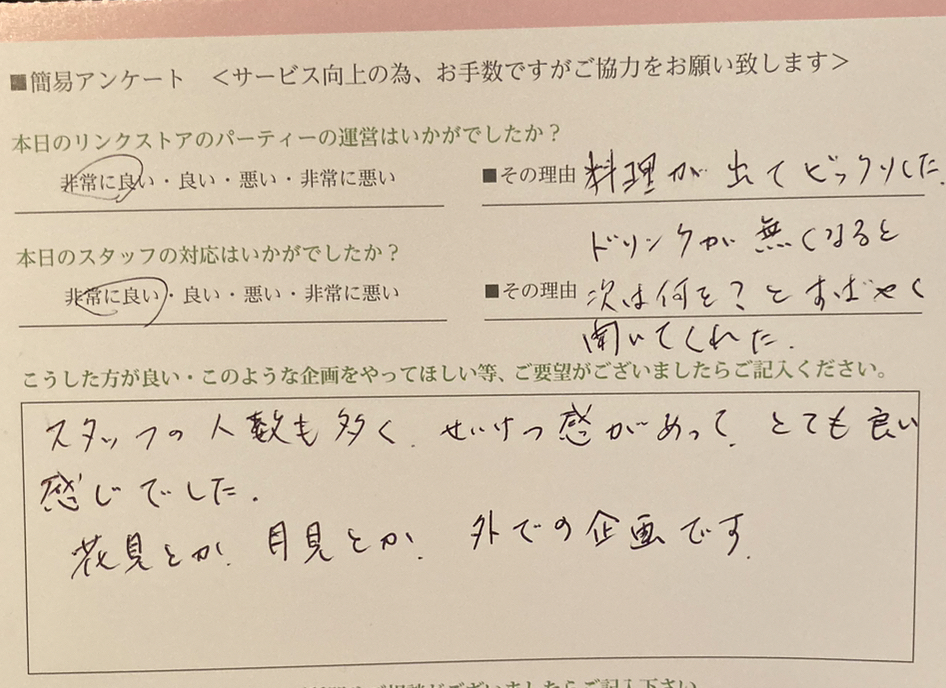 ■簡易アンケート ＜サービス向上の為、お手数ですがご協力をお願い致します＞
本日のリンクストアのパーティーの運営はいかがでしたか？
非常に良い・良い・悪い・非常に悪い
■その理由 料理が出てビックリした.
本日のスタッフの対応はいかがでしたか？
ドリンクが無くなると
非常に良い・良い・悪い・非常に悪い
■その理由 次は何を？とすばやく
聞いてくれた.
こうした方が良い・このような企画をやってほしい等、ご要望がございましたらご記入ください。
スタッフの人数も多く、せいけつ感があって、とても良い
感じでした.
花見とか、月見とか、外での企画です.
ございましたらご記入下さい